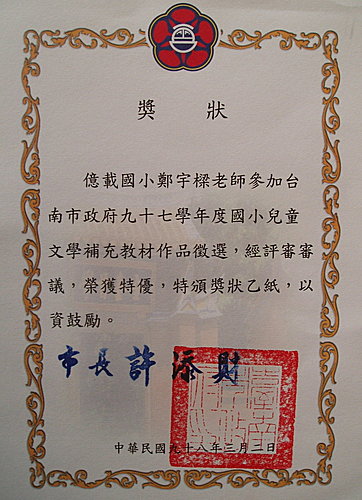 獎狀
億載國小鄭宇樑老師參加台
南市政府九十七學年度國小兒童
文學補充教材作品徵選，經評審審
議，榮獲特優，特頒獎狀乙紙，以
資鼓勵。
市長許添財
中華民國九十八年三月二日